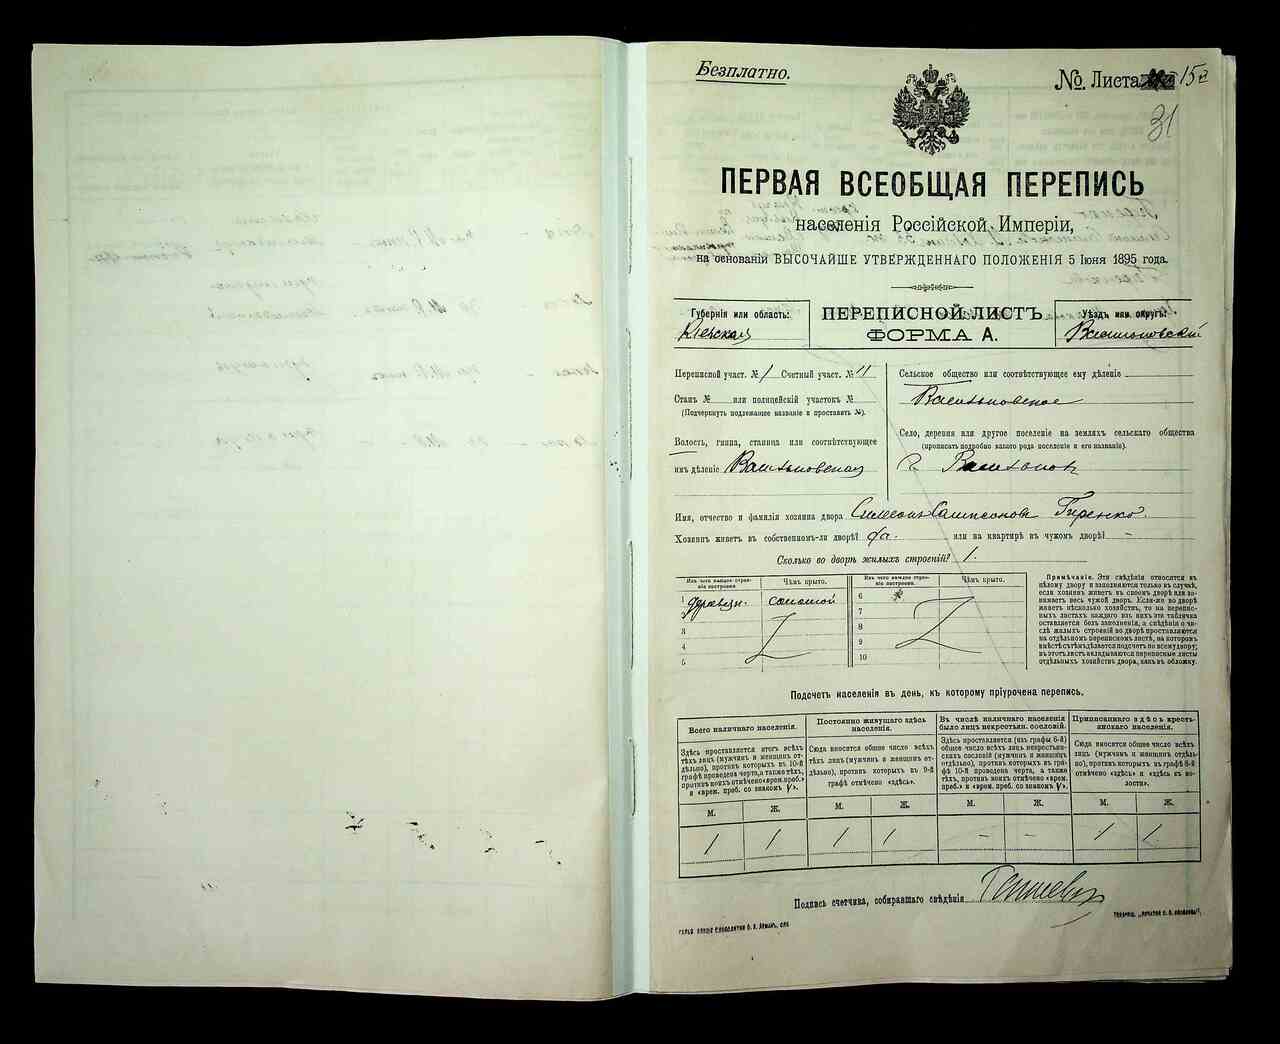 Безплатно.
№. Листа 15
31
ПЕРВАЯ ВСЕОБЩАЯ ПЕРЕПИСЬ
населенія Россійской Имперіи,
на основаніи ВЫСОЧАЙШЕ УТВЕРЖДЕННАГО ПОЛОЖЕНІЯ 5 Іюня 1895 года.
Губернія или область:
Кіевская
ПЕРЕПИСНОЙ ЛИСТЪ
ФОРМА А.
Уѣздъ или округъ:
Васильковскій
Переписной участ. № 1 Счетный участ. № 11
Станъ № или полицейскій участокъ №
(Подчеркнуть подлежащее названіе и проставить №).
Волость, гмина, станица или соотвѣтствующее
имъ дѣленіе Васильковская
Сельское общество или соотвѣтствующее ему дѣленіе
Васильковское
Село, деревня или другое поселеніе на земляхъ сельскаго общества
(прописать подробно какого рода поселеніе и его названіе).
г. Васильковъ
Имя, отчество и фамилія хозяина двора Симеонъ Сампсоновъ Гиренко.
Хозяинъ живетъ въ собственномъ-ли дворѣ? да. или на квартирѣ въ чужомъ дворѣ? –
Сколько во дворѣ жилыхъ строеній? 1.
Изъ чего каждое строеніе построено. Чѣмъ крыто.
1 деревян. соломой
2
3
4
5
Изъ чего каждое строеніе построено. Чѣмъ крыто.
6
7
8
9
10
Примѣчаніе. Эти свѣдѣнія относятся къ
цѣлому двору и заполняются только въ случаѣ,
если хозяинъ живетъ въ своемъ дворѣ или занимаетъ
весь чужой дворъ. Если-же во дворѣ
живетъ нѣсколько хозяйствъ, то на переписныхъ
листахъ каждаго изъ нихъ эта табличка
оставляется безъ заполненія, а свѣдѣнія о числѣ
жилыхъ строеній во дворѣ проставляются
на отдѣльномъ переписномъ листѣ, на которомъ
вмѣстѣ съ тѣмъ дѣлается подсчетъ по всему двору;
въ этотъ листъ вкладываются переписные листы
отдѣльныхъ хозяйствъ двора, какъ въ обложку.
Подсчетъ населенія въ день, къ которому пріурочена перепись.
Всего наличнаго населенія.
Здѣсь проставляется итогъ всѣхъ
тѣхъ лицъ (мужчинъ и женщинъ отдѣльно),
противъ которыхъ въ 10-й
графѣ проведена черта, а также тѣхъ,
противъ коихъ отмѣчено «врем. преб.»
и «врем. преб. со знакомъ V».
М. Ж.
1 1
Постоянно живущаго здѣсь населенія.
Сюда вносится общее число всѣхъ
тѣхъ лицъ (мужчинъ и женщинъ отдѣльно),
противъ которыхъ въ 9-й
графѣ отмѣчено «здѣсь».
М. Ж.
1 1
Въ числѣ наличнаго населенія
было лицъ некрестьян. сословій.
Здѣсь проставляется (изъ графы 6-й)
общее число всѣхъ лицъ некрестьянскихъ
сословій (мужчинъ и женщинъ
отдѣльно), противъ которыхъ въ графѣ
10-й проведена черта, а также
тѣхъ, противъ коихъ отмѣчено «врем.
преб.» и «врем. преб. со знакомъ V».
М. Ж.
– –
Приписаннаго здѣсь крестьянскаго населенія.
Сюда вносится общее число всѣхъ
лицъ (мужчинъ и женщинъ отдѣльно),
противъ которыхъ въ графѣ 8-й
отмѣчено «здѣсь» и «здѣсь къ волости».
М. Ж.
1 1
Подпись счетчика, собиравшаго свѣдѣнія